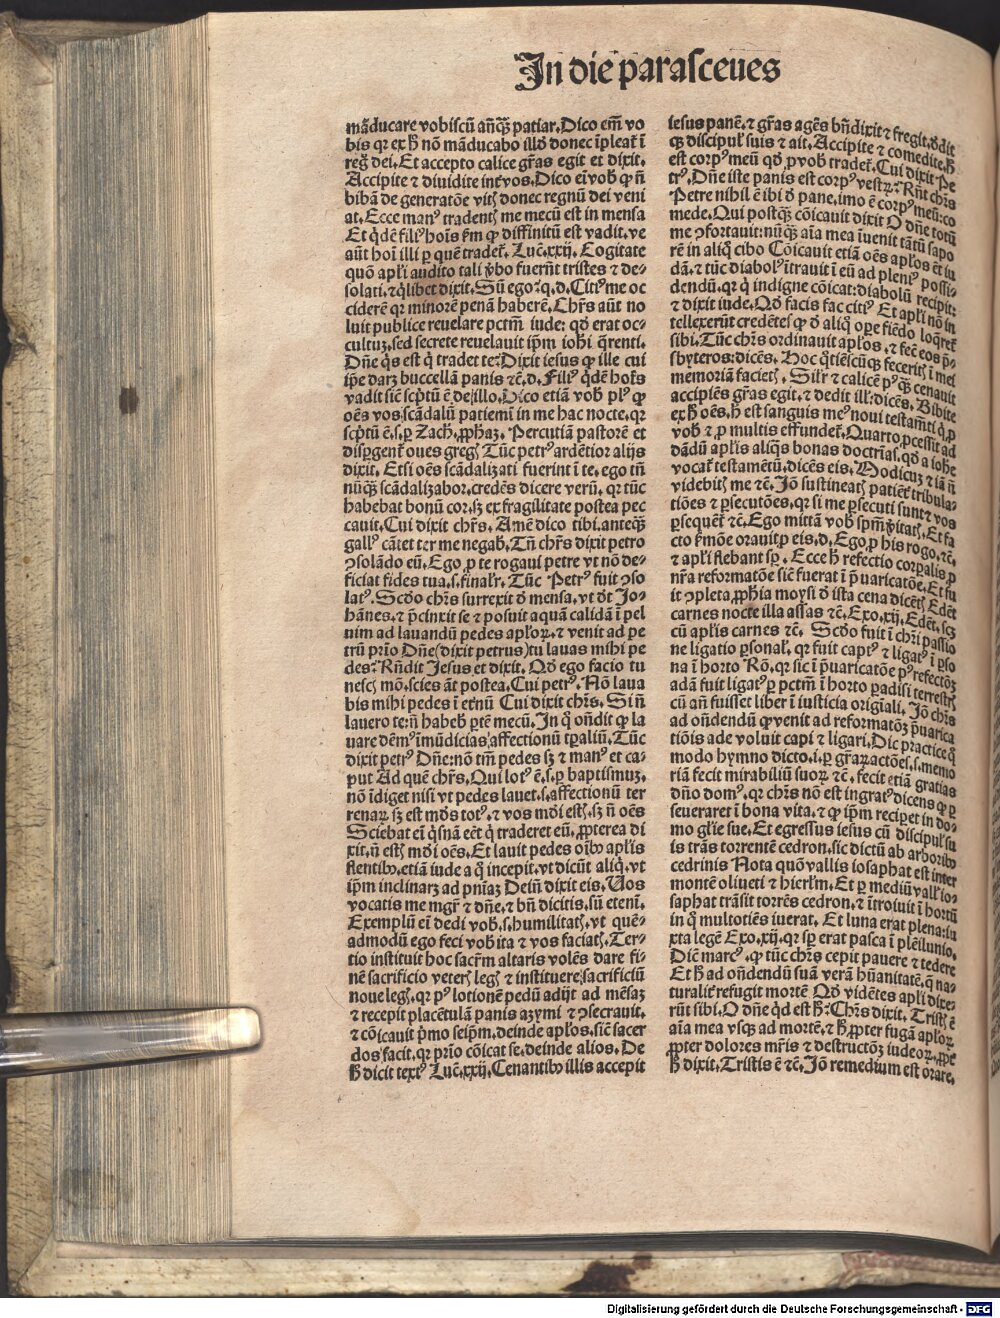 In die parasceues
mãducare vobiscũ añq̃ꝫ patiar. Dico em̃ vo
bis qꝛ ex h̃ nõ mãducabo illđ donec ĩpleat̃ ĩ
reg̃ dei. Et accepto calice gr̃as egit et dixit.
Accipite ⁊ diuidite int̃ vos. Dico ei̅ vob̃ ꝙ ñ
bibã de generatõe vitꝭ donec regnũ dei veni
at. Ecce manꝰ tradentꝭ me mecũ est in mensa
Et q̃dẽ filiꝰ hoĩs ẽm ꝙ diffinitũ est vadit. ve
aũt hoĩ illi ꝑ quẽ tradet̃. Luc̃. xxij. Cogitate
quõ apl̃i audito tali v̓bo fuer̃nt tristes ⁊ de⸗
solati. ⁊ q̃libet dixit. Sũ ego? q. d. Citiꝰ me oc
ciderẽ qꝛ minorẽ penã haberẽ. Chr̃s aũt no
luit publice reuelare pctm̃ iude: qđ erat oc⸗
cultuꝫ. sed secrete reuelauit ip̃m ioh̃i q̃renti.
Dñe q̃s est q̃ tradet te? Dixit iesus ꝙ ille cui
ip̃e darꝫ buccellã panis ⁊c̃. d. Filiꝰ q̃dẽ hoĩs
vadit sic̃ sc̃ptũ ẽ de illo. Dico etiã vob̃ plꝰ ꝙ
oẽs vos scãdalũ patiemĩ in me hac nocte. qꝛ
sc̃ptũ ẽ. s. ꝑ Zach̃. ꝓph̃aꝫ. Percutiã pastorẽ et
disꝑgent̃ oues gregꝭ Tũc petrꝰ ardẽtior alijs
dixit. Etsi oẽs scãdalizati fuerint ĩ te. ego tñ
nũq̃ꝫ scãdalizabor. credẽs dicere verũ. qꝛ tũc
habebat bonũ cor. sꝫ ex fragilitate postea pec
cauit. Cui dixit chr̃s. Amẽ dico tibi. anteq̃ꝫ
gallꝰ cãtet ter me negab̃. Tñ chr̃s dixit petro
ꝯsolãdo eũ. Ego ꝓ te rogaui petre vt nõ de⸗
ficiat fides tua. s. final̃r. Tũc Petrꝰ fuit ꝯso
latꝰ. Scđo chr̃s surrexit đ mensa. vt đt Jo⸗
hãnes. ⁊ p̃cinxit se ⁊ posuit aquã calidã ĩ pel
uim ad lauandũ pedes apl̃oꝝ. ⁊ venit ad pe
trũ pr̃io Dñe (dixit petrus) tu lauas mihi pe
des? Rñdit Jesus et dixit. Qđ ego facio tu
nescꝭ mõ. scies ãt postea. Cui petrꝰ. Nõ laua
bis mihi pedes ĩ et̃nũ Cui dixit chr̃s. Si ñ
lauero te: ñ habeb̃ ꝑtẽ mecũ. In q̃ oñdit ꝙ la
uare dẽmꝰ ĩmũdicias affectionũ tꝑaliũ. Tũc
dixit petrꝰ Dñe: nõ tm̃ pedes sꝫ ⁊ manꝰ et ca⸗
put Ad quẽ chr̃s. Qui lotꝰ ẽ. s. ꝑ baptismuꝫ.
nõ ĩdiget nisi vt pedes lauet. s. affectionũ ter
renaꝝ sꝫ est mđs totꝰ. ⁊ vos mđi estꝭ. sꝫ ñ oẽs
Sciebat ei̅ q̃snã eẽt q̃ traderet eũ. ꝓpterea di
xit. ñ estꝭ mđi oẽs. Et lauit pedes oĩbꝫ apl̃is
flentibꝫ. etiã iude a q̃ incepit. vt dicũt aliq̃. vt
ip̃m inclinarꝫ ad pñiaꝫ Deiñ dixit eis. Uos
vocatis me mgr̃ ⁊ dñe. ⁊ bñ dicitis. sũ etenĩ.
Exemplũ ei̅ dedi vob̃. s. humilitatꝭ. vt quẽ⸗
admodũ ego feci vob̃ ita ⁊ vos faciatꝭ. Ter⸗
tio instituit hoc sacr̃m altaris volẽs dare fi⸗
nẽ sacrificio veterꝭ legꝭ ⁊ instituere sacrificiũ
noue legꝭ. qꝛ pꝰ lotionẽ pedũ adijt ad mẽsaꝫ
⁊ recepit placẽtulã panis azymi ⁊ ꝯsecrauit.
⁊ cõicauit p̃mo seip̃m. deinde apl̃os. sic̃ sacer
dos facit. qꝛ pr̃io cõicat se. deinde alios. De
h̃ dicit textꝰ Luc̃. xxij. Cenantibꝫ illis accepit
iesus panẽ. ⁊ gr̃as agẽs bñdixit ⁊ fregit. đdit
qꝫ discipul̃ suis ⁊ ait. Accipite ⁊ comedite. h̃
est corpꝰ meũ qđ ꝓ vob̃ tradet̃. Cui dixit Pe
trꝰ. Dñe iste panis est corpꝰ vestꝝ? Rñt chr̃s
Petre nihil ẽ ibi đ pane. imo ẽ corpꝰ meũ: co
mede. Qui postq̃ꝫ cõicauit dixit O dñe totũ
me ꝯfortauit: nũq̃ꝫ aĩa mea ĩuenit tãtũ sapo
rẽ in aliq̃ cibo Cõicauit etiã oẽs apl̃os et̃ iu
dã. ⁊ tũc diabolꝰ ĩtrauit ĩ eũ ad pleniꝰ possi⸗
dendũ. qꝛ q̃ indigne cõicat: diabolũ recipit:
⁊ dixit iude. Qđ facis fac citiꝰ Et apl̃i nõ in
tellexerũt credẽtes ꝙ đ aliq̃ oꝑe fiẽdo loq̃ret̃
sibi. Tũc chr̃s ordinauit apl̃os. ⁊ fec̃ eos p̃⸗
sbyteros: dicẽs. Hoc q̃tiẽscũqꝫ feceritꝭ ĩ mei
memoriã facietꝭ. Sil̃r ⁊ calicẽ pꝰ q̃ꝫ cenauit
accipiẽs gr̃as egit. ⁊ dedit ill̃: dicẽs. Bibite
ex h̃ oẽs. h̃ est sanguis meꝰ noui testam̃ti q̃ ꝓ
vob̃ ⁊ ꝓ multis effundet̃. Quarto ꝓcessit ad
dãdũ apl̃is aliq̃s bonas doctrĩas. qđ a ioh̃e
vocat̃ testamẽtũ. dicẽs eis. Modicuꝫ ⁊ iã ñ
videbitꝭ me ⁊c̃. Jõ sustineatꝭ patiẽt̃ tribula⸗
tiões ⁊ ꝑsecutões. qꝛ si me ꝑsecuti sunt ⁊ vos
ꝑsequẽt̃ ⁊c̃. Ego mittã vob̃ spm̃ v̓itatꝭ. Et fa
cto ẜmõe orauit ꝓ eis. d. Ego ꝓ his rogo. ⁊c̃.
⁊ apl̃i flebant sꝑ. Ecce h̃ refectio corꝑalis ꝓ
nr̃a reformatõe sic̃ fuerat ĩ p̃uaricatõe. Et fu
it ꝯpleta ꝓph̃ia moysi đ ista cena dicẽtꝭ Edẽt
carnes nocte illa assas ⁊c̃. Exo. xij. Edẽt. scꝫ
cũ apl̃is carnes ⁊c̃. Scđo fuit ĩ chr̃i passio
ne ligatio ꝑsonal̃. qꝛ fuit captꝰ ⁊ ligatꝰ ĩ ꝑso
na ĩ horto Rõ. qꝛ sic ĩ p̃uaricatõe pꝰ refectõꝫ
adã fuit ligatꝰ ꝑ pctm̃ ĩ horto ꝑadisi terrestrꝭ
cũ añ fuisset liber ĩ iusticia origĩali. Jõ chr̃s
ad ondendũ ꝙ venit ad reformatõꝫ p̃uarica
tiõis ade voluit capi ⁊ ligari. Dic practice q̃
modo hymno dicto. i. ꝑ gr̃aꝝ actões. s. memo
riã fecit mirabiliũ suoꝝ ⁊c̃. fecit etiã gratias
dño domꝰ. qꝛ chr̃s nõ est ingratꝰ dicens ꝙ ꝑ
seueraret ĩ bona vita. ⁊ ꝙ ip̃m reciꝑet in do⸗
mo gl̃ie sue. Et egressus iesus cũ discipul̃ su
is trãs torrentẽ cedron. sic dictũ ab arboribꝫ
cedrinis Nota quõ vallis iosaphat est inter
montẽ oliueti ⁊ hierl̃m. Et ꝑ mediũ vall̃ io⸗
saphat trãsit torrẽs cedron. ⁊ ĩtroiuit ĩ hortũ
in q̃ multotiẽs iuerat. Et luna erat plena: iu
xta legẽ Exo. xij. qꝛ sꝑ erat pasca ĩ plẽilunio.
Dic̃ marcꝰ. ꝙ tũc chr̃s cepit pauere ⁊ tedere
Et h̃ ad oñdendũ suã verã hũanitatẽ. q̃ na⸗
turalit̃ refugit mortẽ Qđ vidẽtes apl̃i dixe⸗
rũt sibi. O dñe q̃d est h̃? Chr̃s dixit. Tristꝭ ẽ
aĩa mea vsqꝫ ad mortẽ. ⁊ h̃ ꝓpter fugã apl̃oꝝ
ꝓpter dolores mr̃is ⁊ destructõꝫ iudeoꝝ. ꝓpẽ
h̃ dixit. Tristis ẽ ⁊c̃. Jõ remedium est orare.
Digitalisierung gefördert durch die Deutsche Forschungsgemeinschaft - DFG